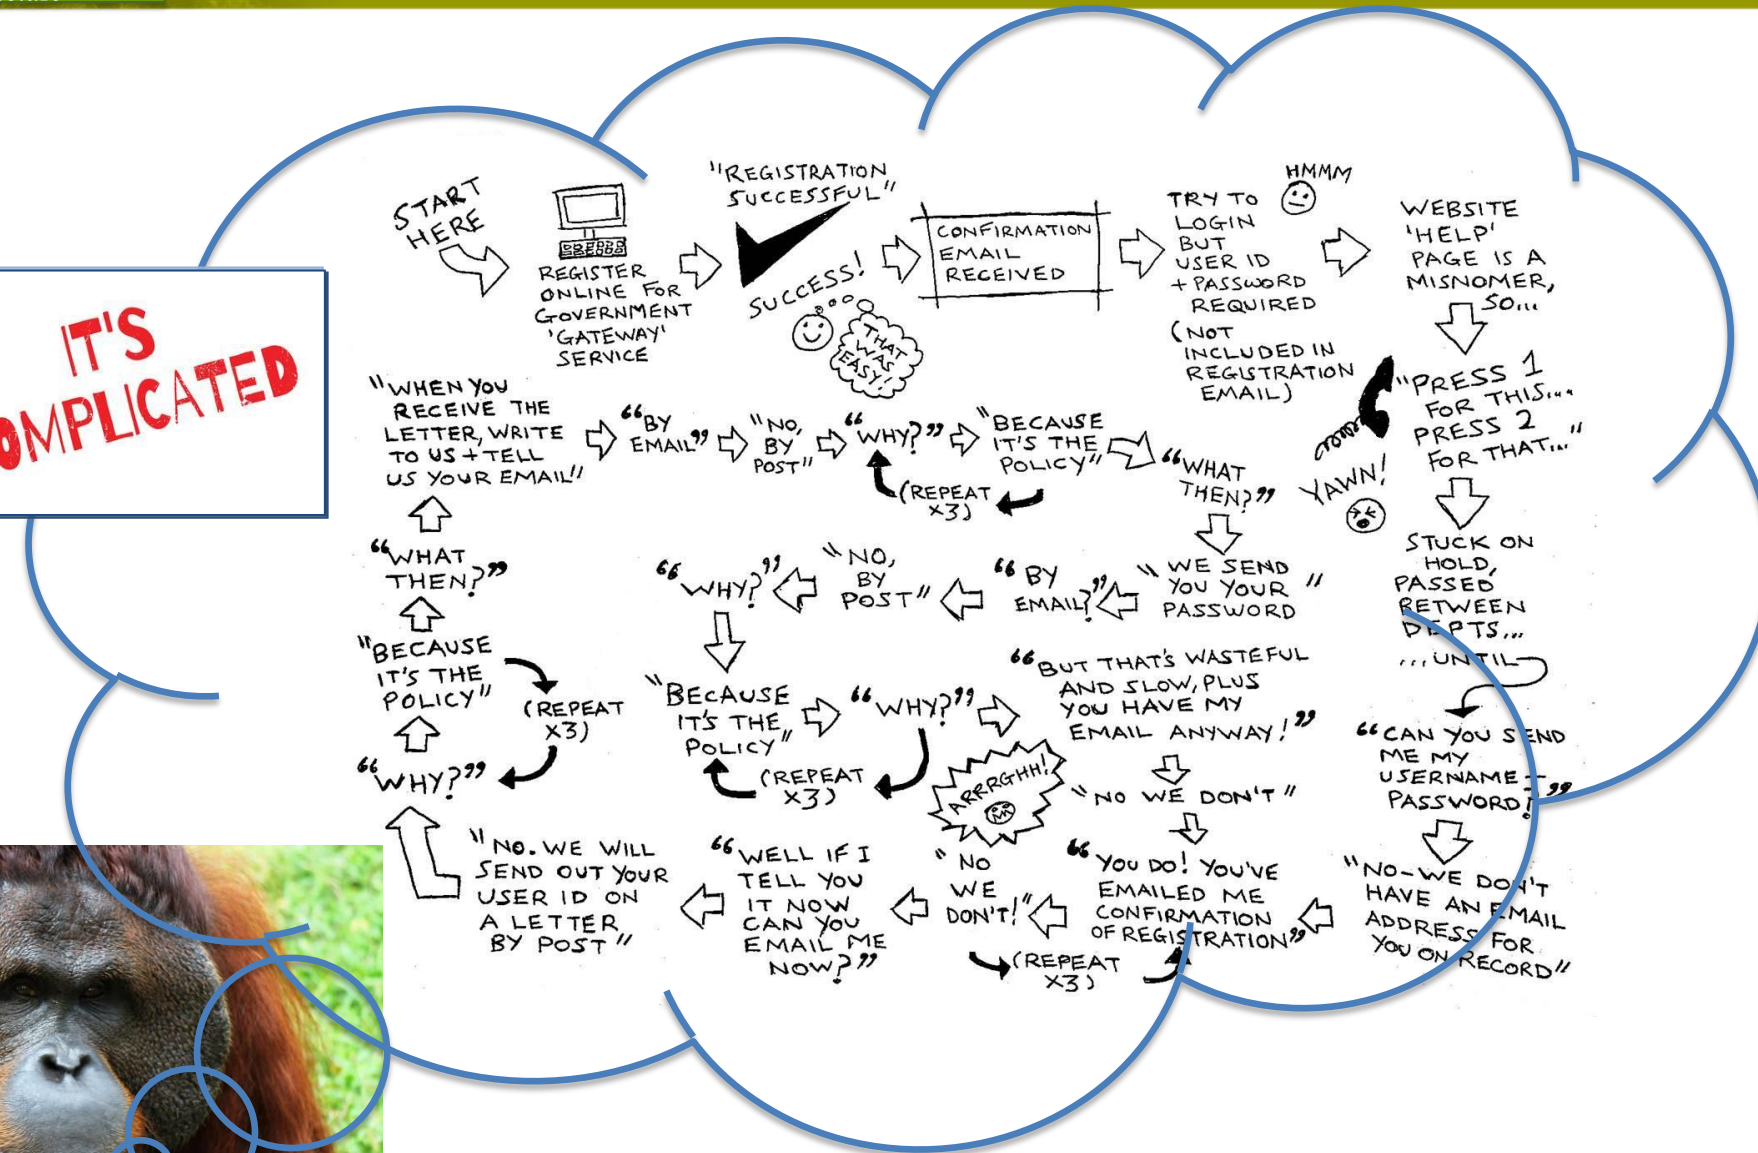 IT'S
COMPLICATED
START
HERE
REGISTER
ONLINE FOR
GOVERNMENT
'GATEWAY'
SERVICE
"REGISTRATION
SUCCESSFUL"
SUCCESS!
THAT
WAS
EASY!
CONFIRMATION
EMAIL
RECEIVED
TRY TO
LOGIN
BUT
USER ID
+ PASSWORD
REQUIRED
(NOT
INCLUDED IN
REGISTRATION
EMAIL)
HMMM
WEBSITE
'HELP'
PAGE IS A
MISNOMER,
SO...
"PRESS 1
FOR THIS...
PRESS 2
FOR THAT..."
YAWN!
STUCK ON
HOLD,
PASSED
BETWEEN
DEPTS...
...UNTIL
“CAN YOU SEND
ME MY
USERNAME +
PASSWORD!”
"NO-WE DON'T
HAVE AN EMAIL
ADDRESS FOR
YOU ON RECORD"
“YOU DO! YOU'VE
EMAILED ME
CONFIRMATION
OF REGISTRATION”
(REPEAT
X3)
"NO
WE
DON'T!"
ARRRGHH!
“WELL IF I
TELL YOU
IT NOW
CAN YOU
EMAIL ME
NOW?”
"NO. WE WILL
SEND OUT YOUR
USER ID ON
A LETTER
BY POST"
“WHY?”
(REPEAT
X3)
"BECAUSE
IT'S THE
POLICY"
“WHAT
THEN?”
"WHEN YOU
RECEIVE THE
LETTER, WRITE
TO US + TELL
US YOUR EMAIL"
“BY
EMAIL”
"NO,
BY
POST"
“WHY?”
(REPEAT
X3)
"BECAUSE
IT'S THE
POLICY"
“WHAT
THEN?”
"WE SEND
YOU YOUR"
PASSWORD
“BY
EMAIL?”
"NO,
BY
POST"
“WHY?”
"BECAUSE
IT'S THE
POLICY"
“WHY?”
(REPEAT
X3)
“BUT THAT'S WASTEFUL
AND SLOW, PLUS
YOU HAVE MY
EMAIL ANYWAY!”
"NO WE DON'T"